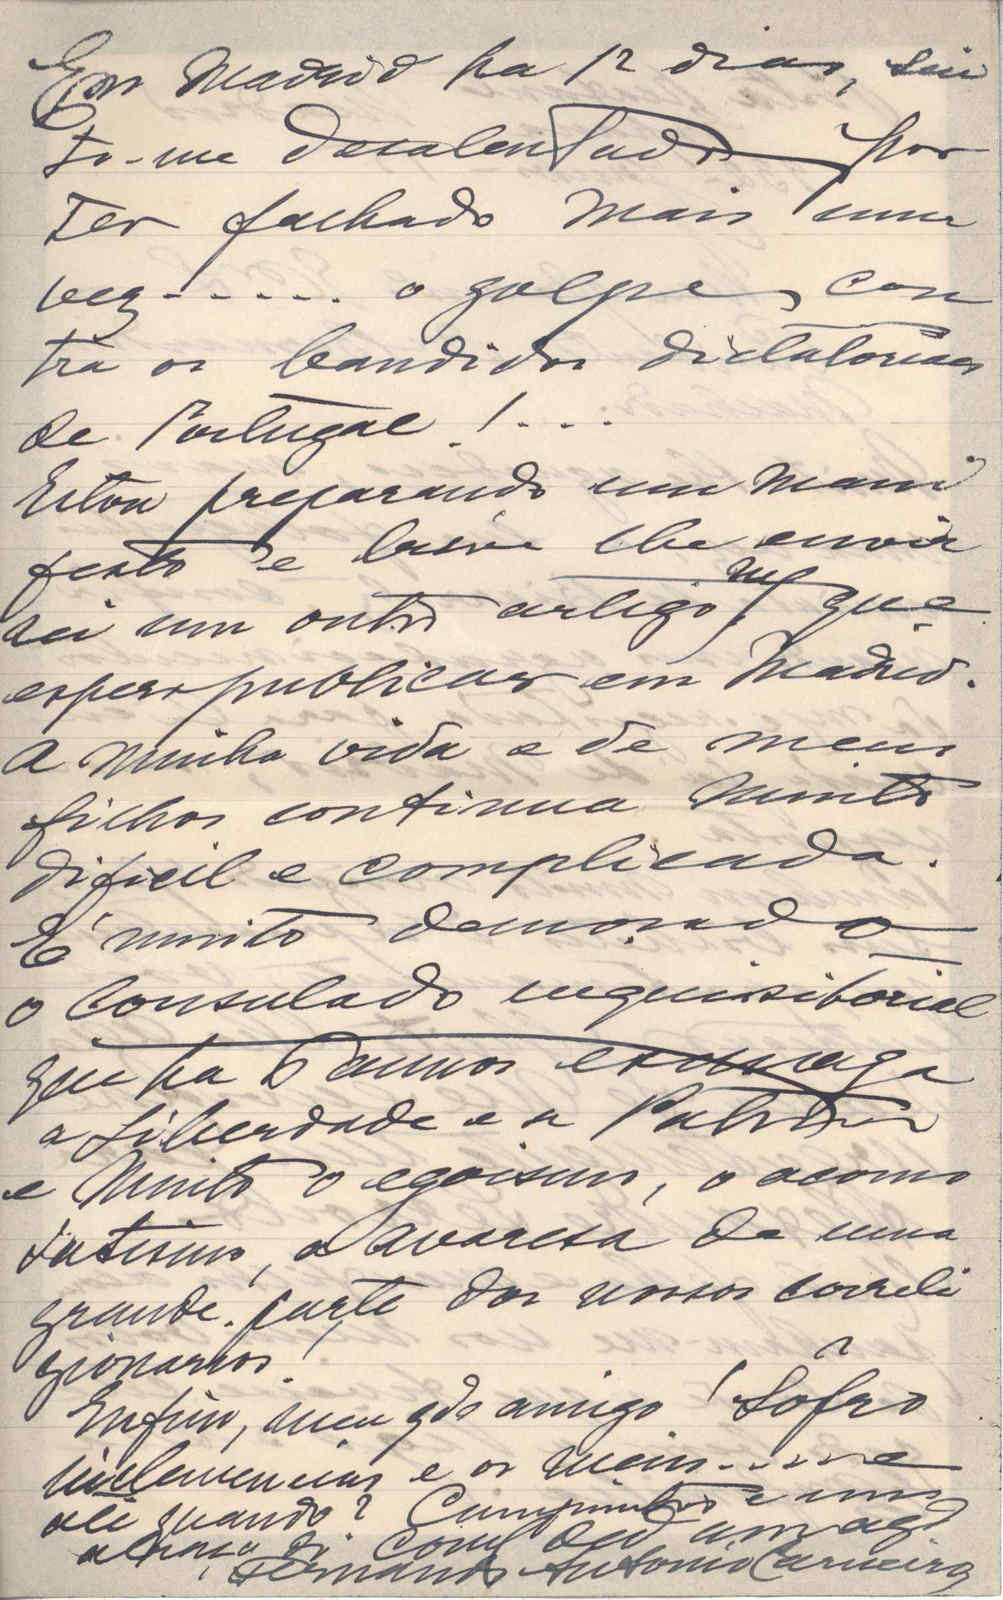 Em Madrid ha 12 dias, sin
to-me desalentado por
ter falhado mais uma
vez...... o golpe, con
tra os bandidos dictatoriaes
de Portugal!...
Estou preparando um mani
festo e breve lhe envia
rei um outro artigo que
espero publicar em Madrid.
A minha vida e de meus
filhos continua muito
dificil e complicada.
É muito demorado
o consulado inquisitorial
que ha 6 annos esmaga
a Liberdade e a Patria
e muito o egoismo, o acomo
datismo, a avaresa de uma
grande parte dos nossos correli
gionarios!
Enfim, meu gde amigo! Sofro
inclemencias e os meus.....
até quando? Cumprimentos e um
abraço do
Fernando Antonio Carneiro